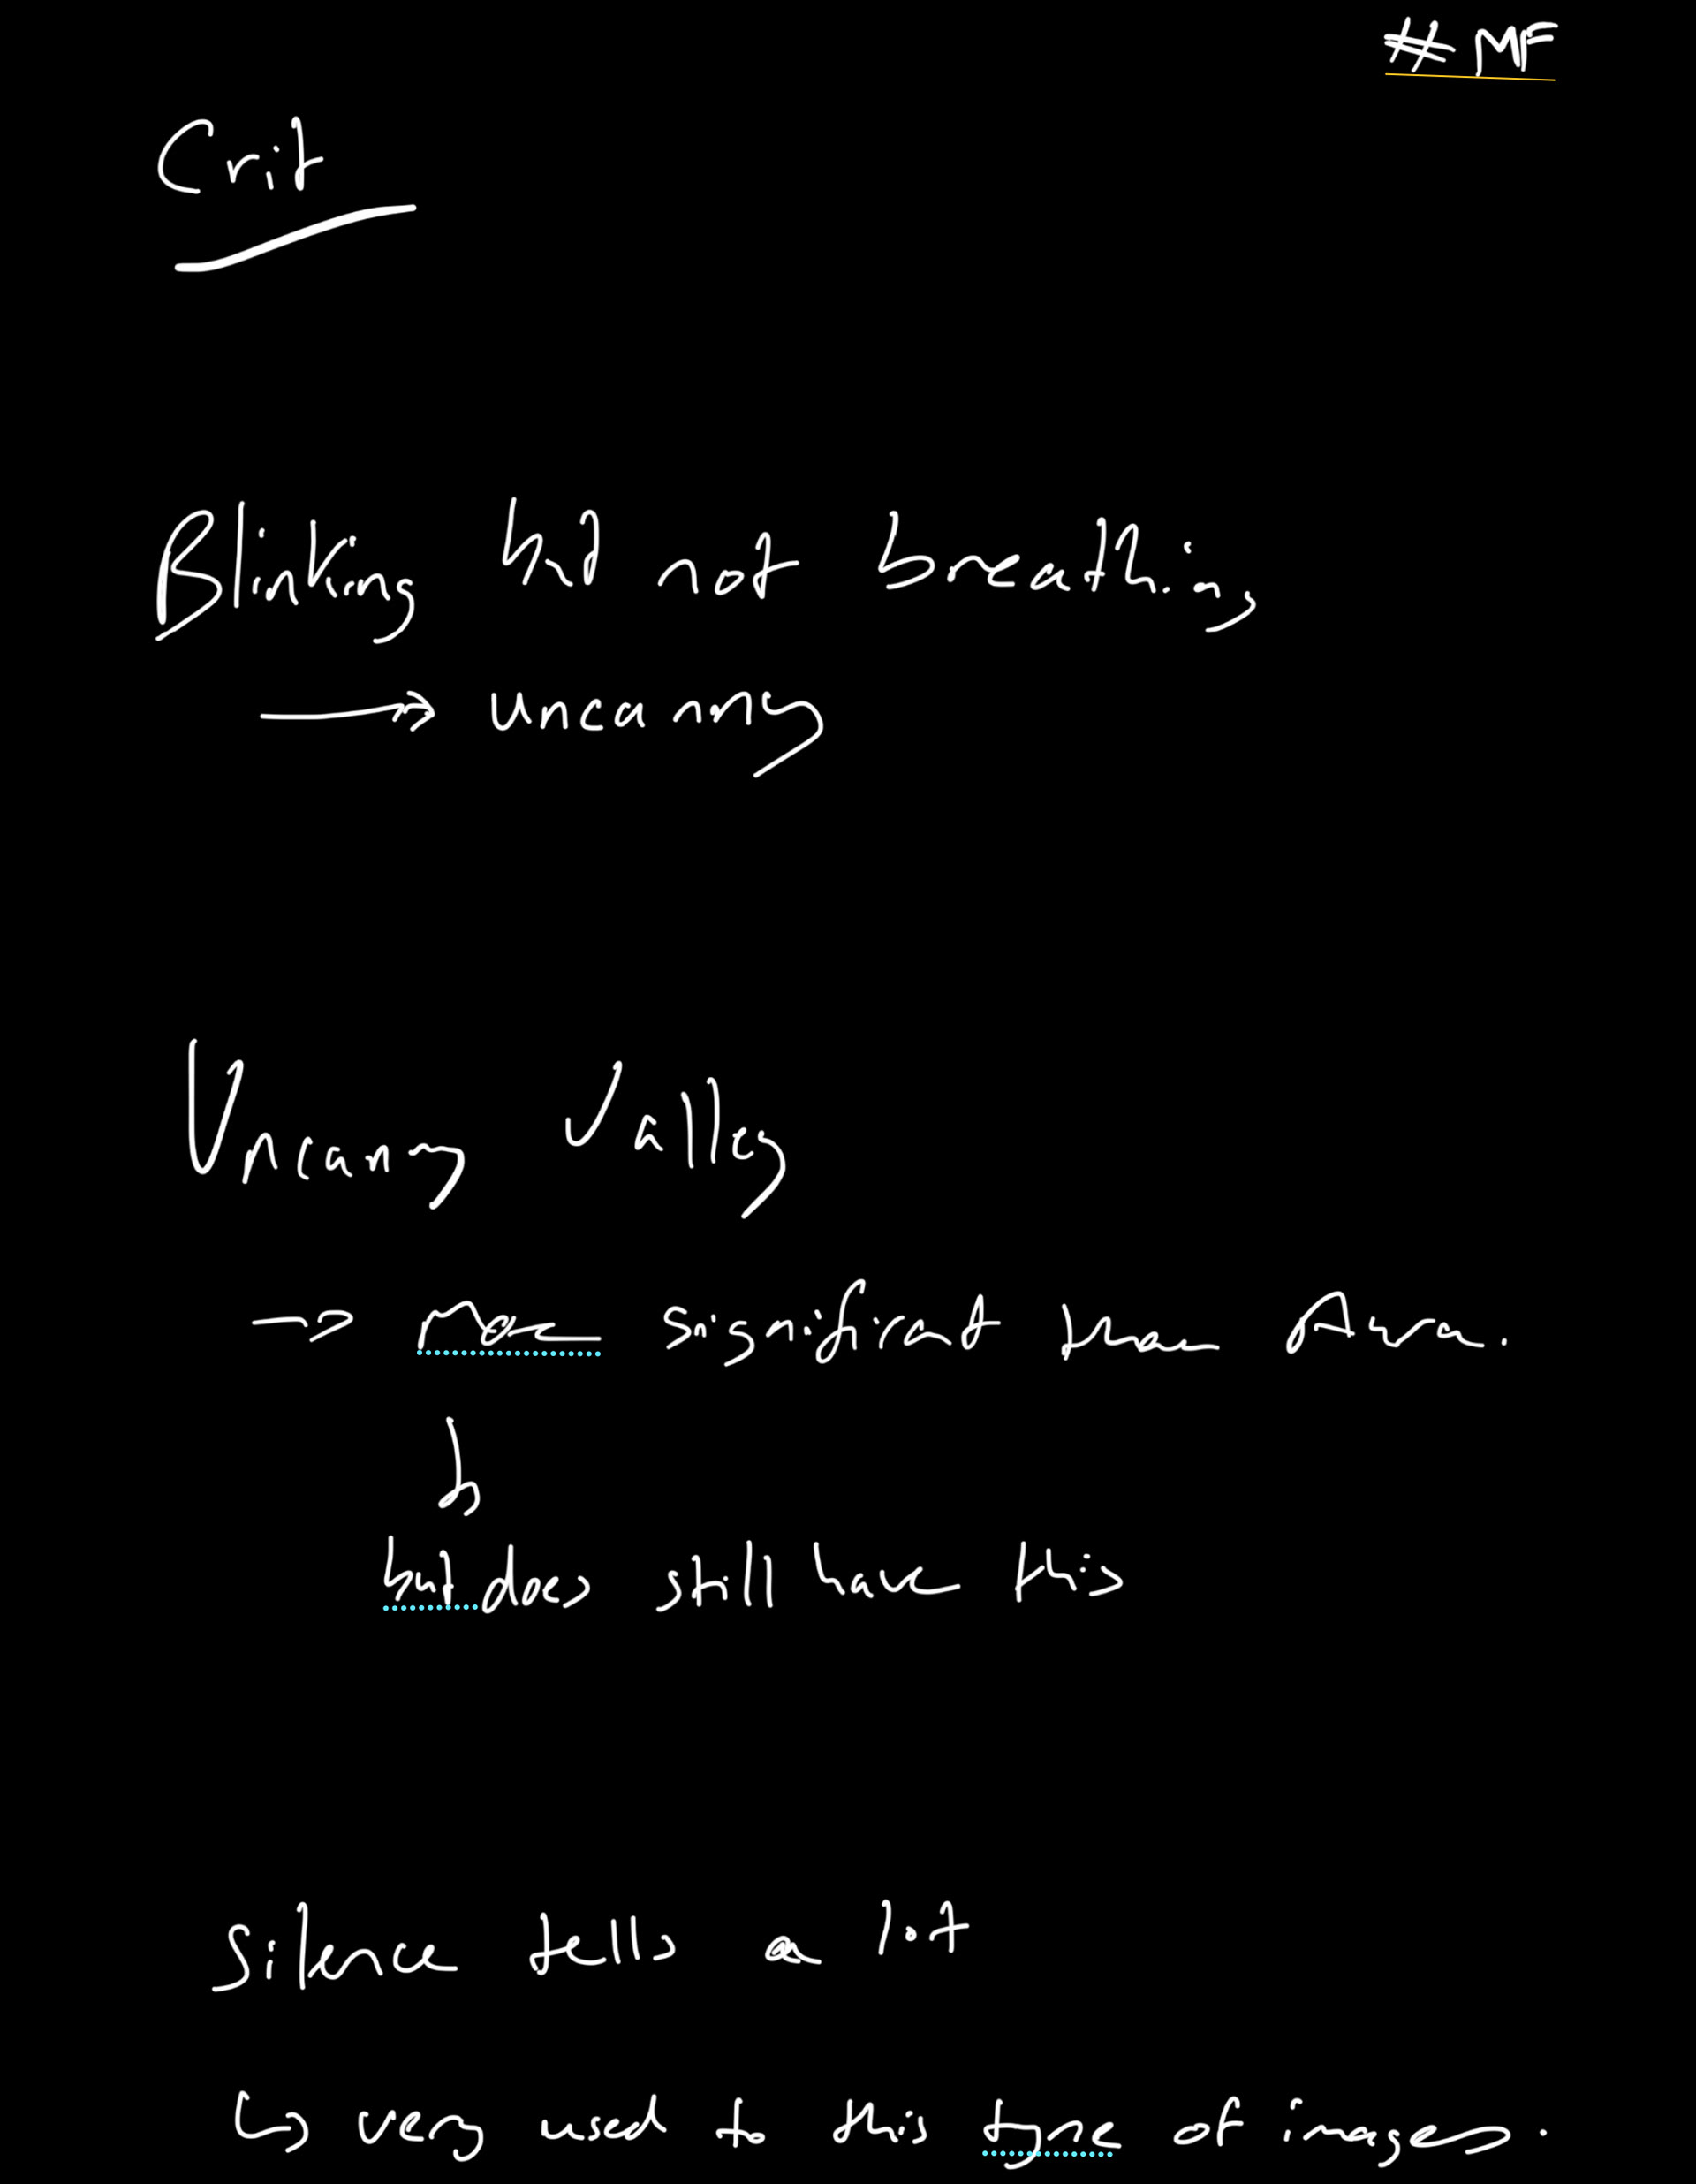 # MF
Crit
Blinking but not breathing
→ uncanny
Uncanny Valley
→ more significant than Aura.
↳
but does still have this
Silence tells a lot
↳ very used to this type of images.